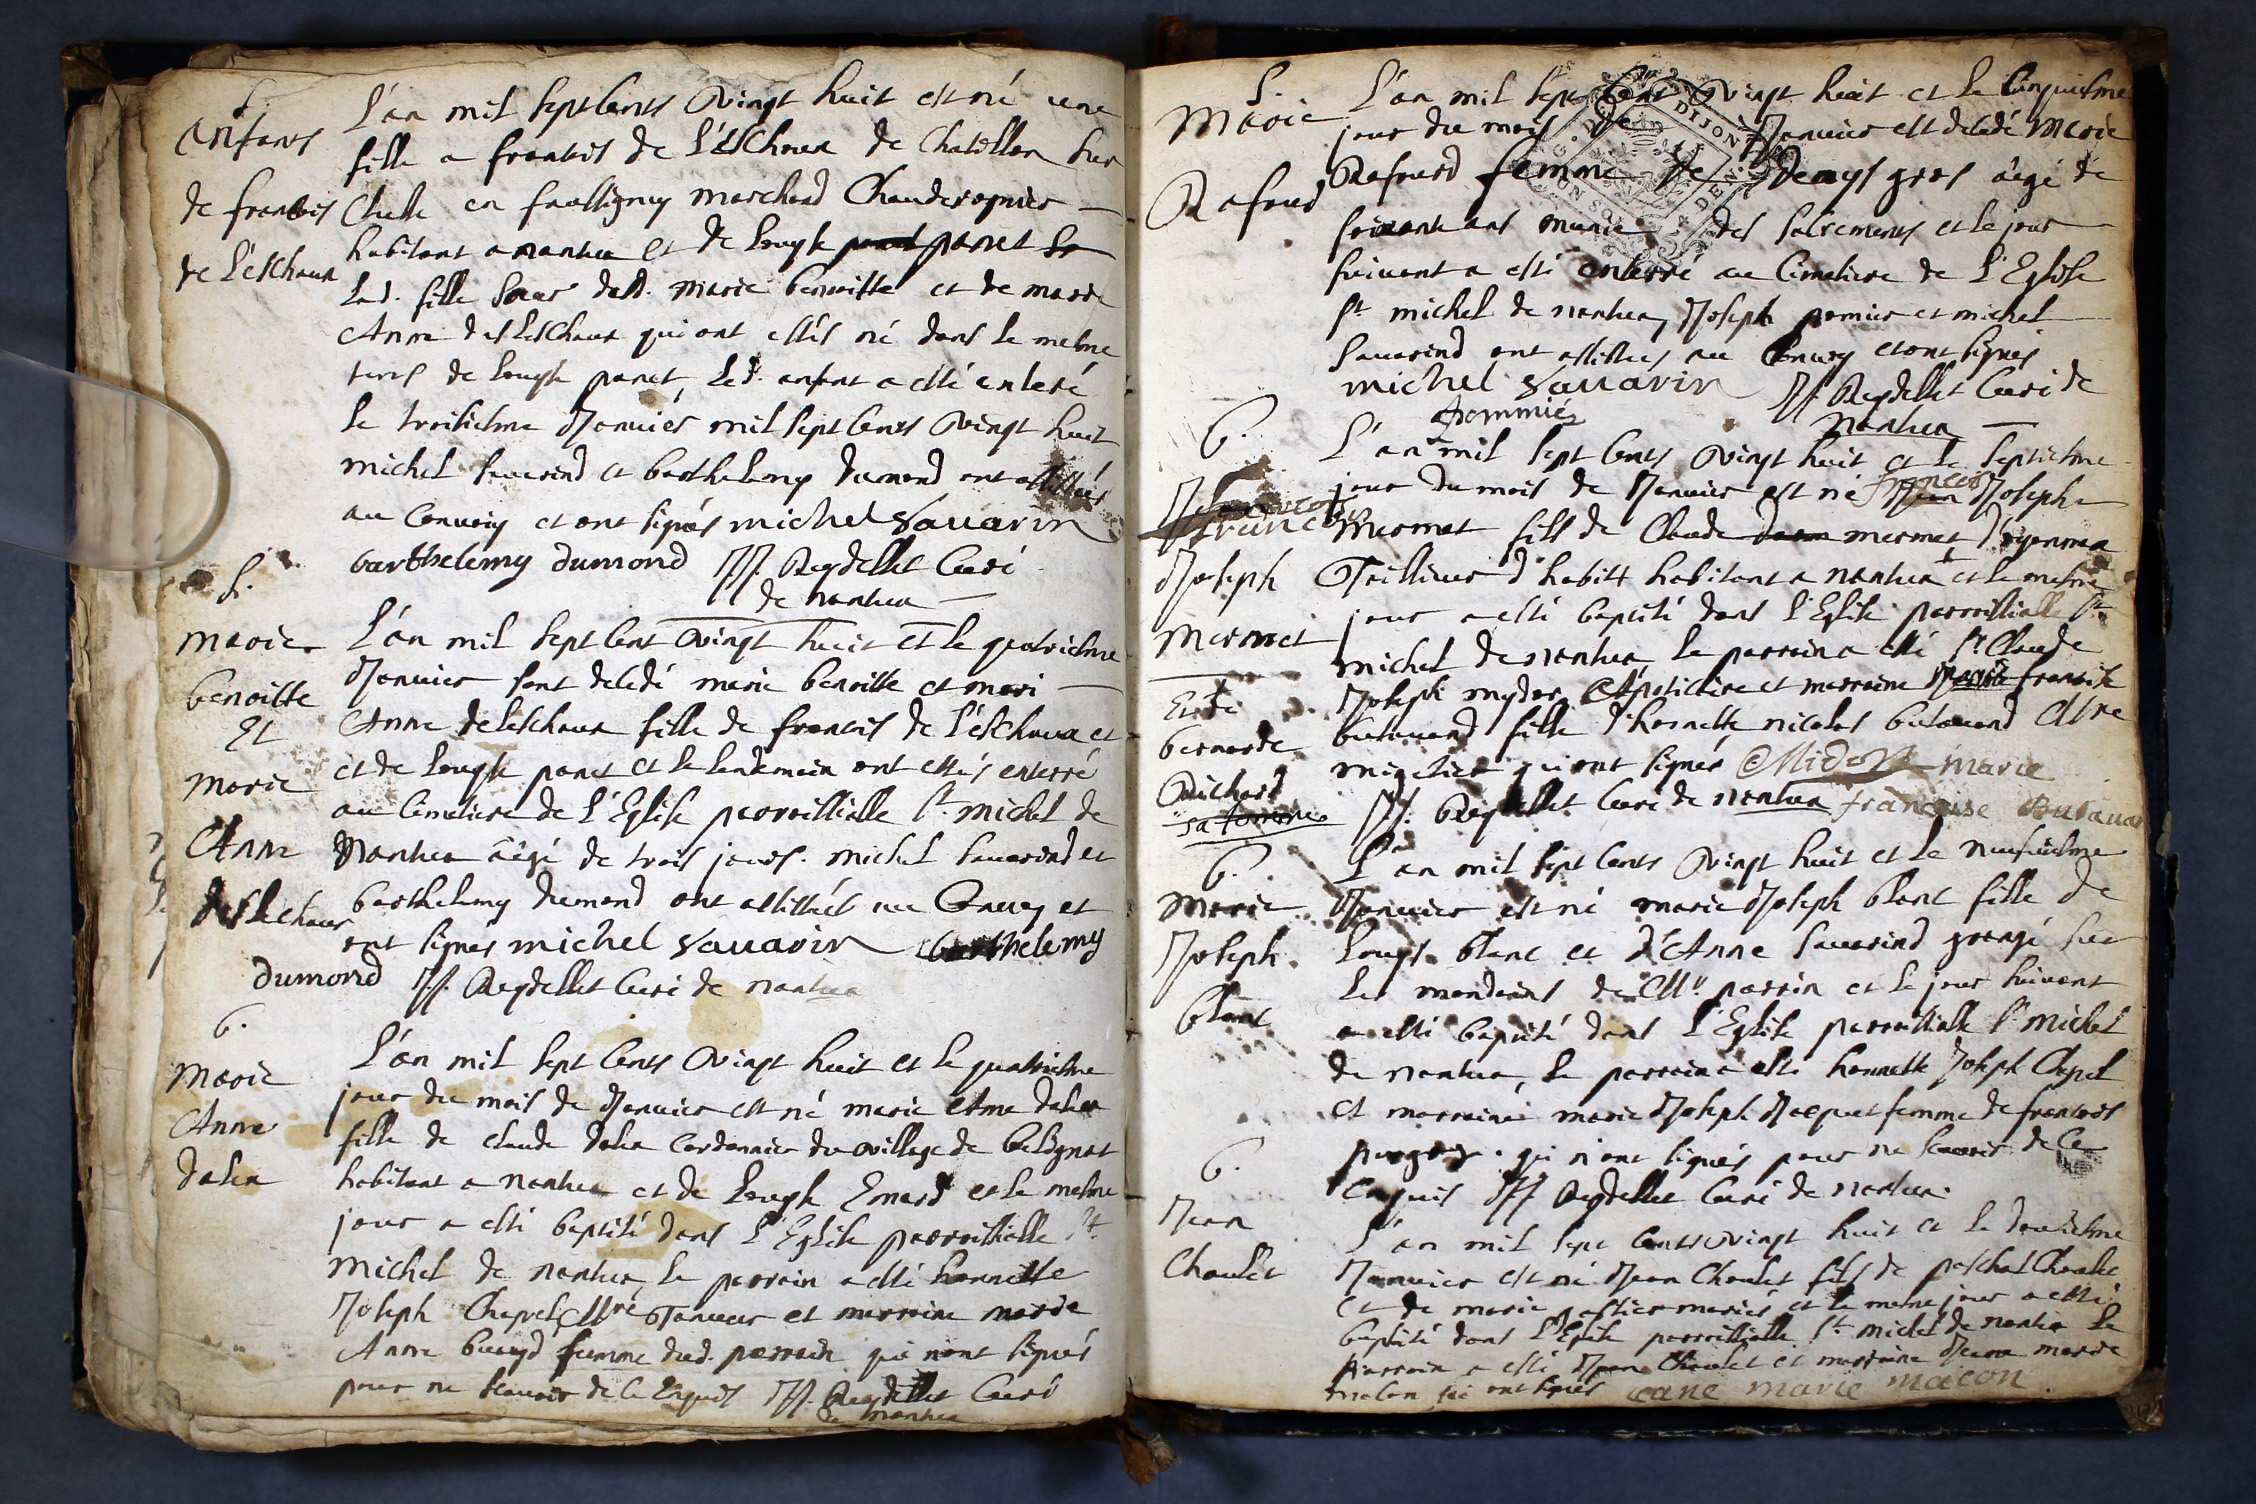 S.
Enfans
de francois
de L'eschaux
L'an mil sept Cents Vingt huit est né une
fille a francois de L'Eschaux de Chatillon sur
Cluse en faussigny marchand Chauderognier
habitant a nantua et de Louyse panet
Lad. fille Soeur dud. marie benoitte et de marie
Anne desleschaux qui ont estés né dans le mesme
tems de Louyse panet, led. enfant a esté enterré
le troisiesme Janvier mil sept Cents Vingt huit
michel sauarind et barthelemy dumond ont assistés
au Convoiy et ont signés michel Sauarin
barthelemy dumond JJ. Reydellet Curé
de nantua
S.
marie
benoitte
Et
marie
Anne
deslechaux
L'an mil sept Cent Vingt huit et le quatriesme
Janvier sont decedé marie benoitte et mari
Anne deleschaux fille de francois de L'eschaux et
et de Louyse panet et le lendemain ont estés enterré
au Cimetiere de L'Eglise parroissialle St. michel de
Nantua âgé de trois jours. michel sauarind et
barthelemy dumond ont assistés au Convoy et
ont signés michel Sauarin barthelemy
dumond JJ. Reydellet Curé de nantua
b.
Marie
Anne
dalex
L'an mil sept Cents Vingt huit et le quatriesme
jour du mois de Janvier est né marie Anne dalex
fille de claude dalex Cordonnier du village de belignat
habitant a nantua et de Louyse Emard et le mesme
jour a esté baptisé dans L'Eglise parroissialle St.
Michel de nantua, le parrain a esté honneste
Joseph Chapel Mtre Tanneur et marraine marie
Anne femme dud. parrain qui n'ont signés
pour ne scavoir de Ce Enquis JJ. Reydellet Curé
de Nantua
S.
Marie
Rafourd
L'an mil sept Cent Vingt huit et le Cinquiesme
jour du mois de Janvier est decedé Marie
Rafourd femme de denys gros âgé de
soixante ans munie des sacrements et le jour
suivant a esté enterré au Cimetiere de L'Eglise
St michel de nantua, Joseph pomier et michel
Sauarind ont assistés au Convoy et ont signés
michel Sauarin JJ. Reydellet Curé de
pommiés Nantua
b.
francois
Joseph
Mermet
Et de
bernarde
Richard
sa femme
L'an mil sept Cents Vingt huit et le septiesme
jour du mois de Janvier est né francois Joseph
Mermet fils de Claude mermet d'oyonnax
Tailleur d'habits habitant a nantua + et le mesme
jour a esté baptisé dans l'Eglise parroissialle St
michel de nantua le parrain a esté Sr. Claude
Joseph mydor Apoticaire et marraine Marie francoise
butauand fille d'honneste nicolas butauand Mtre
qui ont signés Midor marie
JJ. Reydellet Curé de Nantua francoise Butauan
b.
Marie
Joseph
blanc
L'an mil sept Cents Vingt huit et le neufuiesme
Janvier est né marie Joseph blanc fille de
Louys blanc et d'Anne sauarind grangé sur
Les de Mr. perrin et le jour suivant
a esté baptisé dans L'Eglise parroissialle St michel
de nantua, le parrain a esté honneste Joseph Chapel
et marraine marie Joseph Jacquet femme de francois
qui n'ont signés pour ne scavoir de Ce
Enquis JJ Reydellet Curé de nantua
b.
Jean
Choulet
L'an mil sept Cents Vingt huit et le douziesme
Janvier est né Jean Choulet fils de paschal Choulet
et de marie mariés et le meme jour a esté
baptisé dans L'Eglise parroissialle St michel de nantua le
parrain a esté Jean Choulet et marraine Jeane marie
macon qui ont signés jeane marie macon